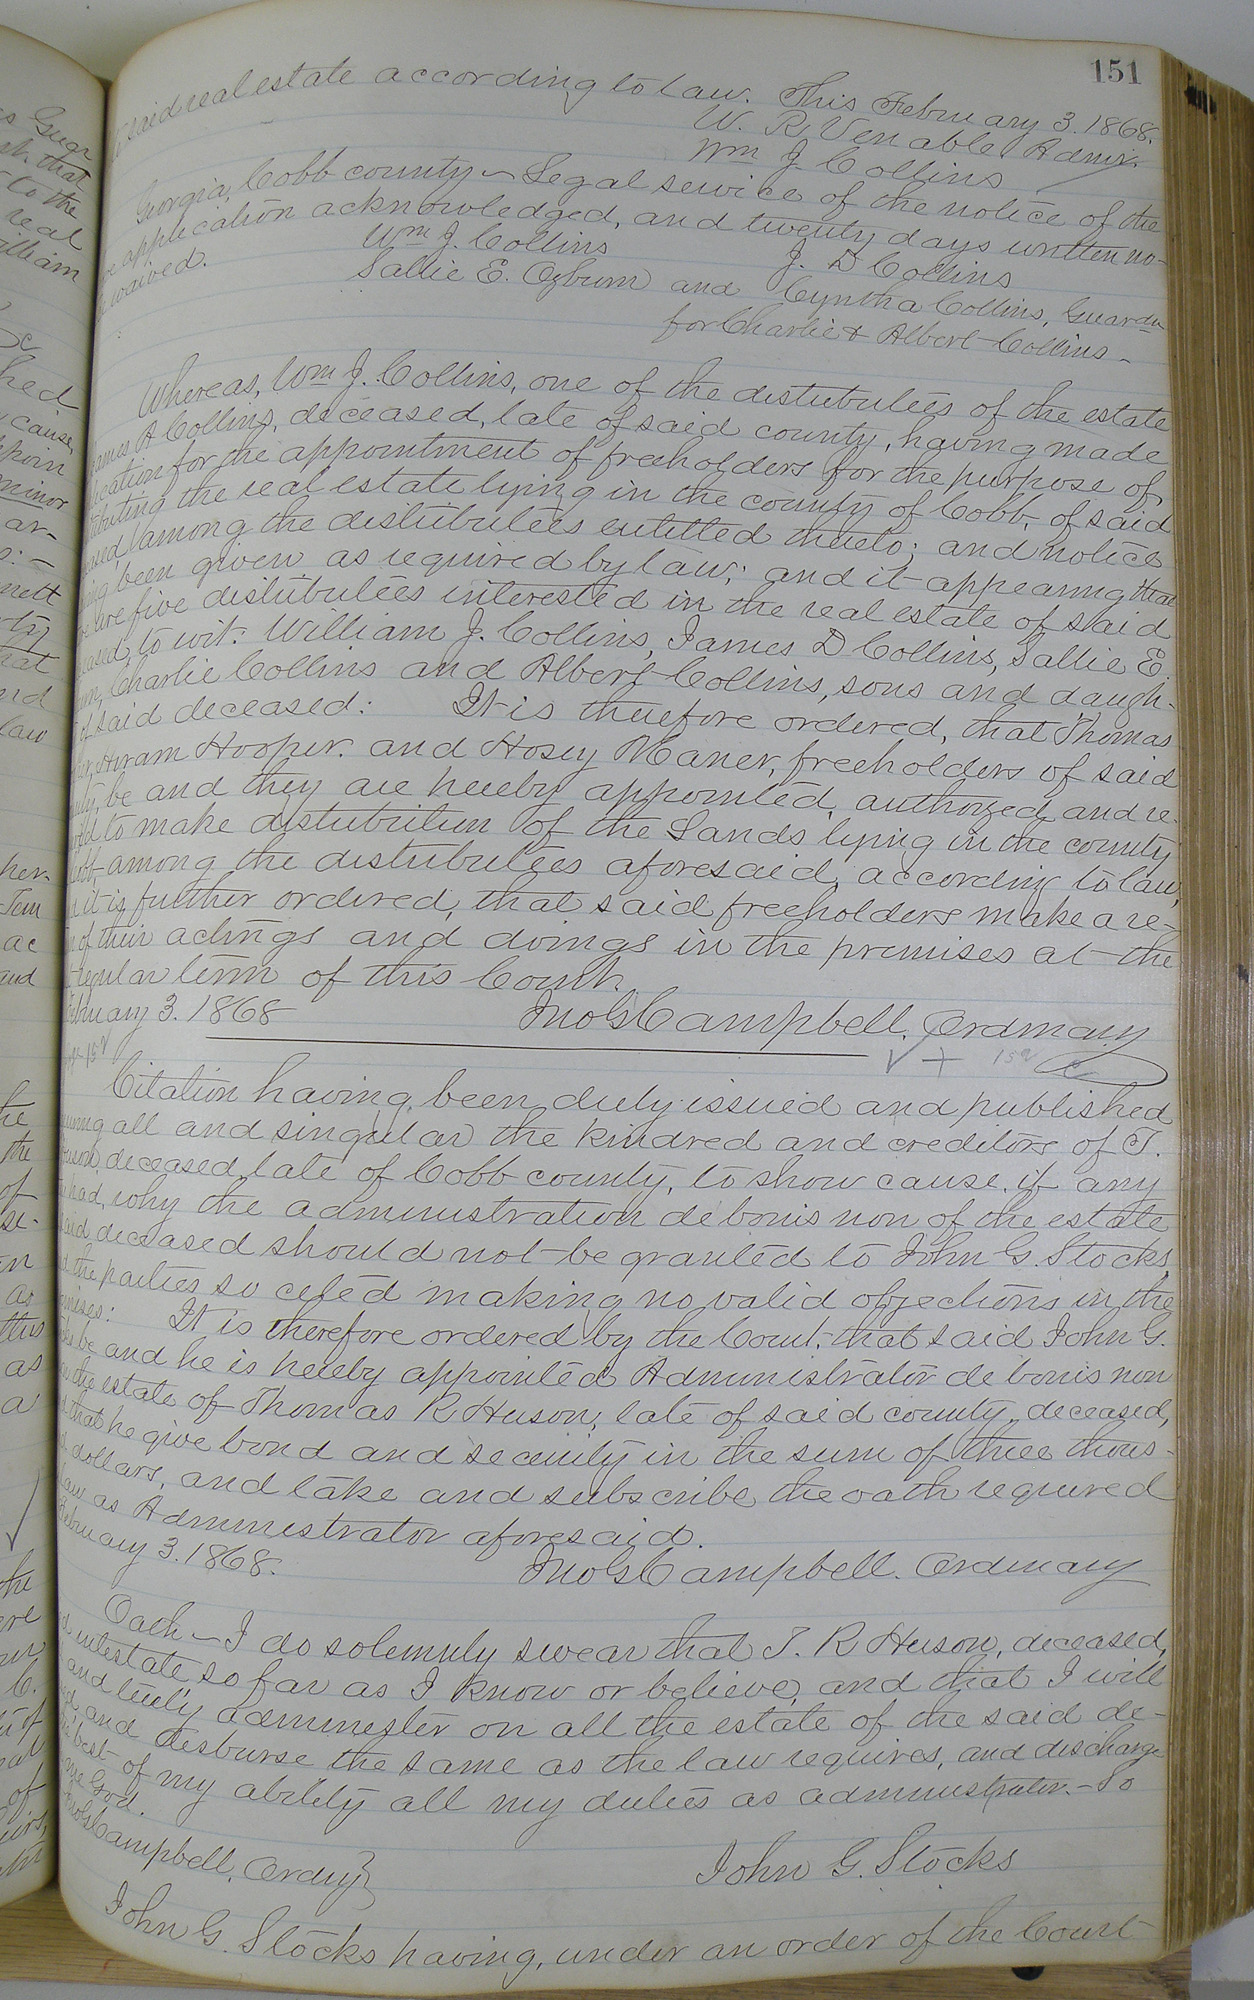 151
said real estate according to law. This February 3. 1868.
W. R. Venable Admr.
Wm J. Collins
Georgia, Cobb county – Legal service of the notice of the
application acknowledged, and twenty days written no-
waived.
Wm J. Collins J. D Collins
Sallie E. Ogburn and Cyntha Collins, Guardn
for Charlie & Albert Collins –
Whereas, Wm J. Collins, one of the distributees of the estate
James A Collins, deceased, late of said county, having made
ication for the appointment of freeholders for the purpose of
tributing the real estate lying in the county of Cobb, of said
eased, among the distributees entitled thereto; and notice
ing been given as required by law; and it appearing that
re are five distributees interested in the real estate of said
eased, to wit: William J. Collins, James D Collins, Sallie E.
Charlie Collins and Albert Collins, sons and daugh-
of said deceased: It is therefore ordered, that Thomas
Hiram Hooper. and Hosey Maner, freeholders of said
nty, be and they are hereby appointed, authorized and re-
to make distribution of the Lands lying in the county
Cobb, among the distributees aforesaid, according to law,
it is further ordered, that said freeholders make a re-
of their actings and doings in the premises at the
regular term of this Court.
February 3. 1868 Jno G Campbell. Ordinary
152
Citation having been duly issued and published
all and singular the kindred and creditors of T.
Huson, deceased, late of Cobb county, to show cause, if any
had, why the administration de bonis non of the estate
said deceased should not be granted to John G. Stocks,
the parties so cited making no valid objections in the
emises: It is therefore ordered by the Court, that said John G.
be and he is hereby appointed Administrator de bonis non
the estate of Thomas R Huson, late of said county, deceased,
that he give bond and security in the sum of three thous-
dollars, and take and subscribe the oath required
law as Administrator aforesaid.
February 3. 1868. Jno G Campbell. Ordinary
Oath – I do solemnly swear that T. R Huson, deceased,
intestate so far as I know or believe, and that I will
and truly administer on all the estate of the said de-
and disburse the same as the law requires, and discharge
best of my ability all my duties as administrator. – So
me God.
Jno G Campbell, Ordny } John G. Stocks
John G. Stocks having, under an order of the Court